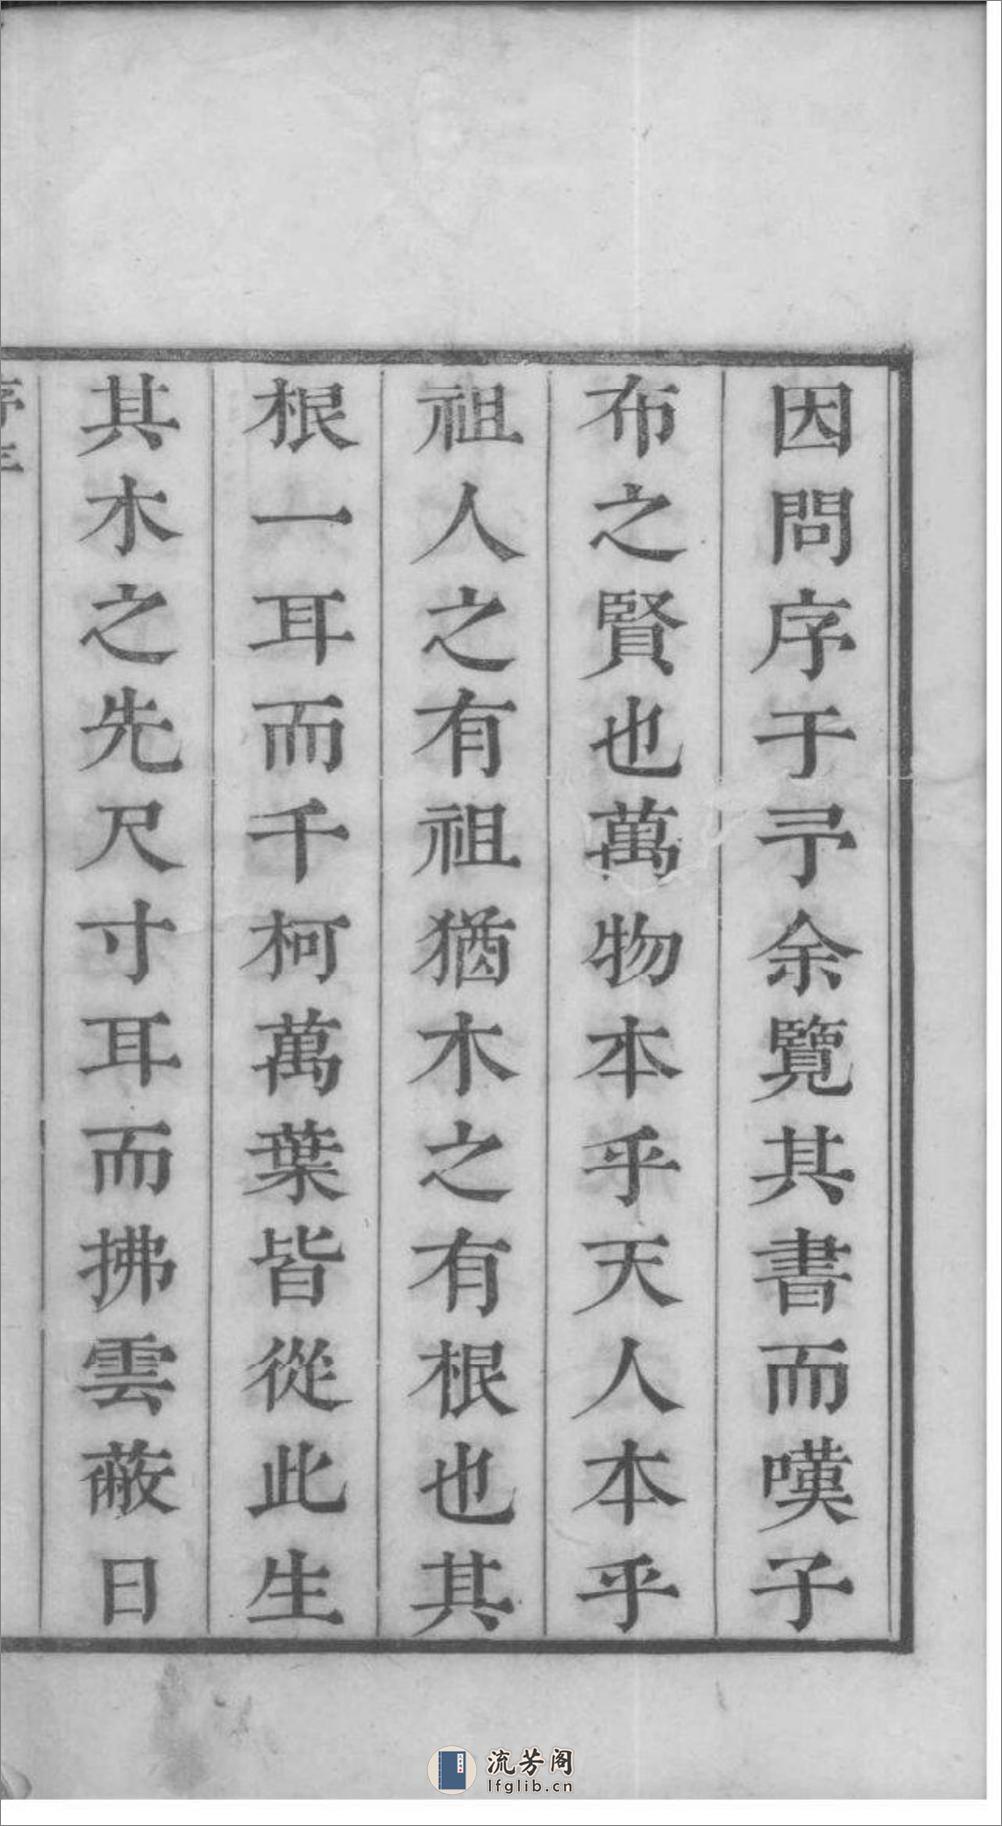 因問序于予余覽其書而嘆子
布之賢也萬物本乎天人本乎
祖人之有祖猶木之有根也其
根一耳而千柯萬葉皆從此生
其木之先尺寸耳而拂雲蔽日
流芳阁
lfglib.cn